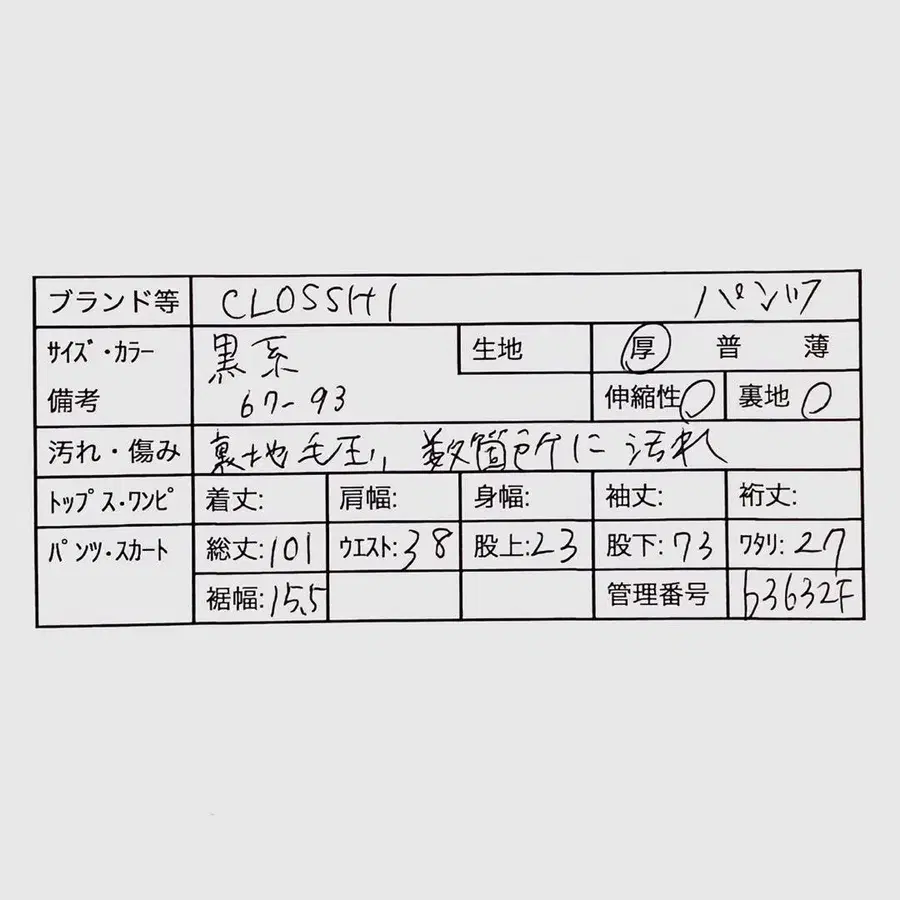 ブランド等 CLOSSHI パンツ
ｻｲｽﾞ・ｶﾗｰ 黒系 生地 厚 普 薄
備考 67-93 伸縮性○ 裏地 ○
汚れ・傷み 裏地毛玉, 数箇所に汚れ
ﾄｯﾌﾟｽ・ﾜﾝﾋﾟ 着丈: 肩幅: 身幅: 袖丈: 裄丈:
ﾊﾟﾝﾂ・ｽｶｰﾄ 総丈:101 ｳｴｽﾄ:38 股上:23 股下:73 ﾜﾀﾘ:27
裾幅:15.5 管理番号 b3632F